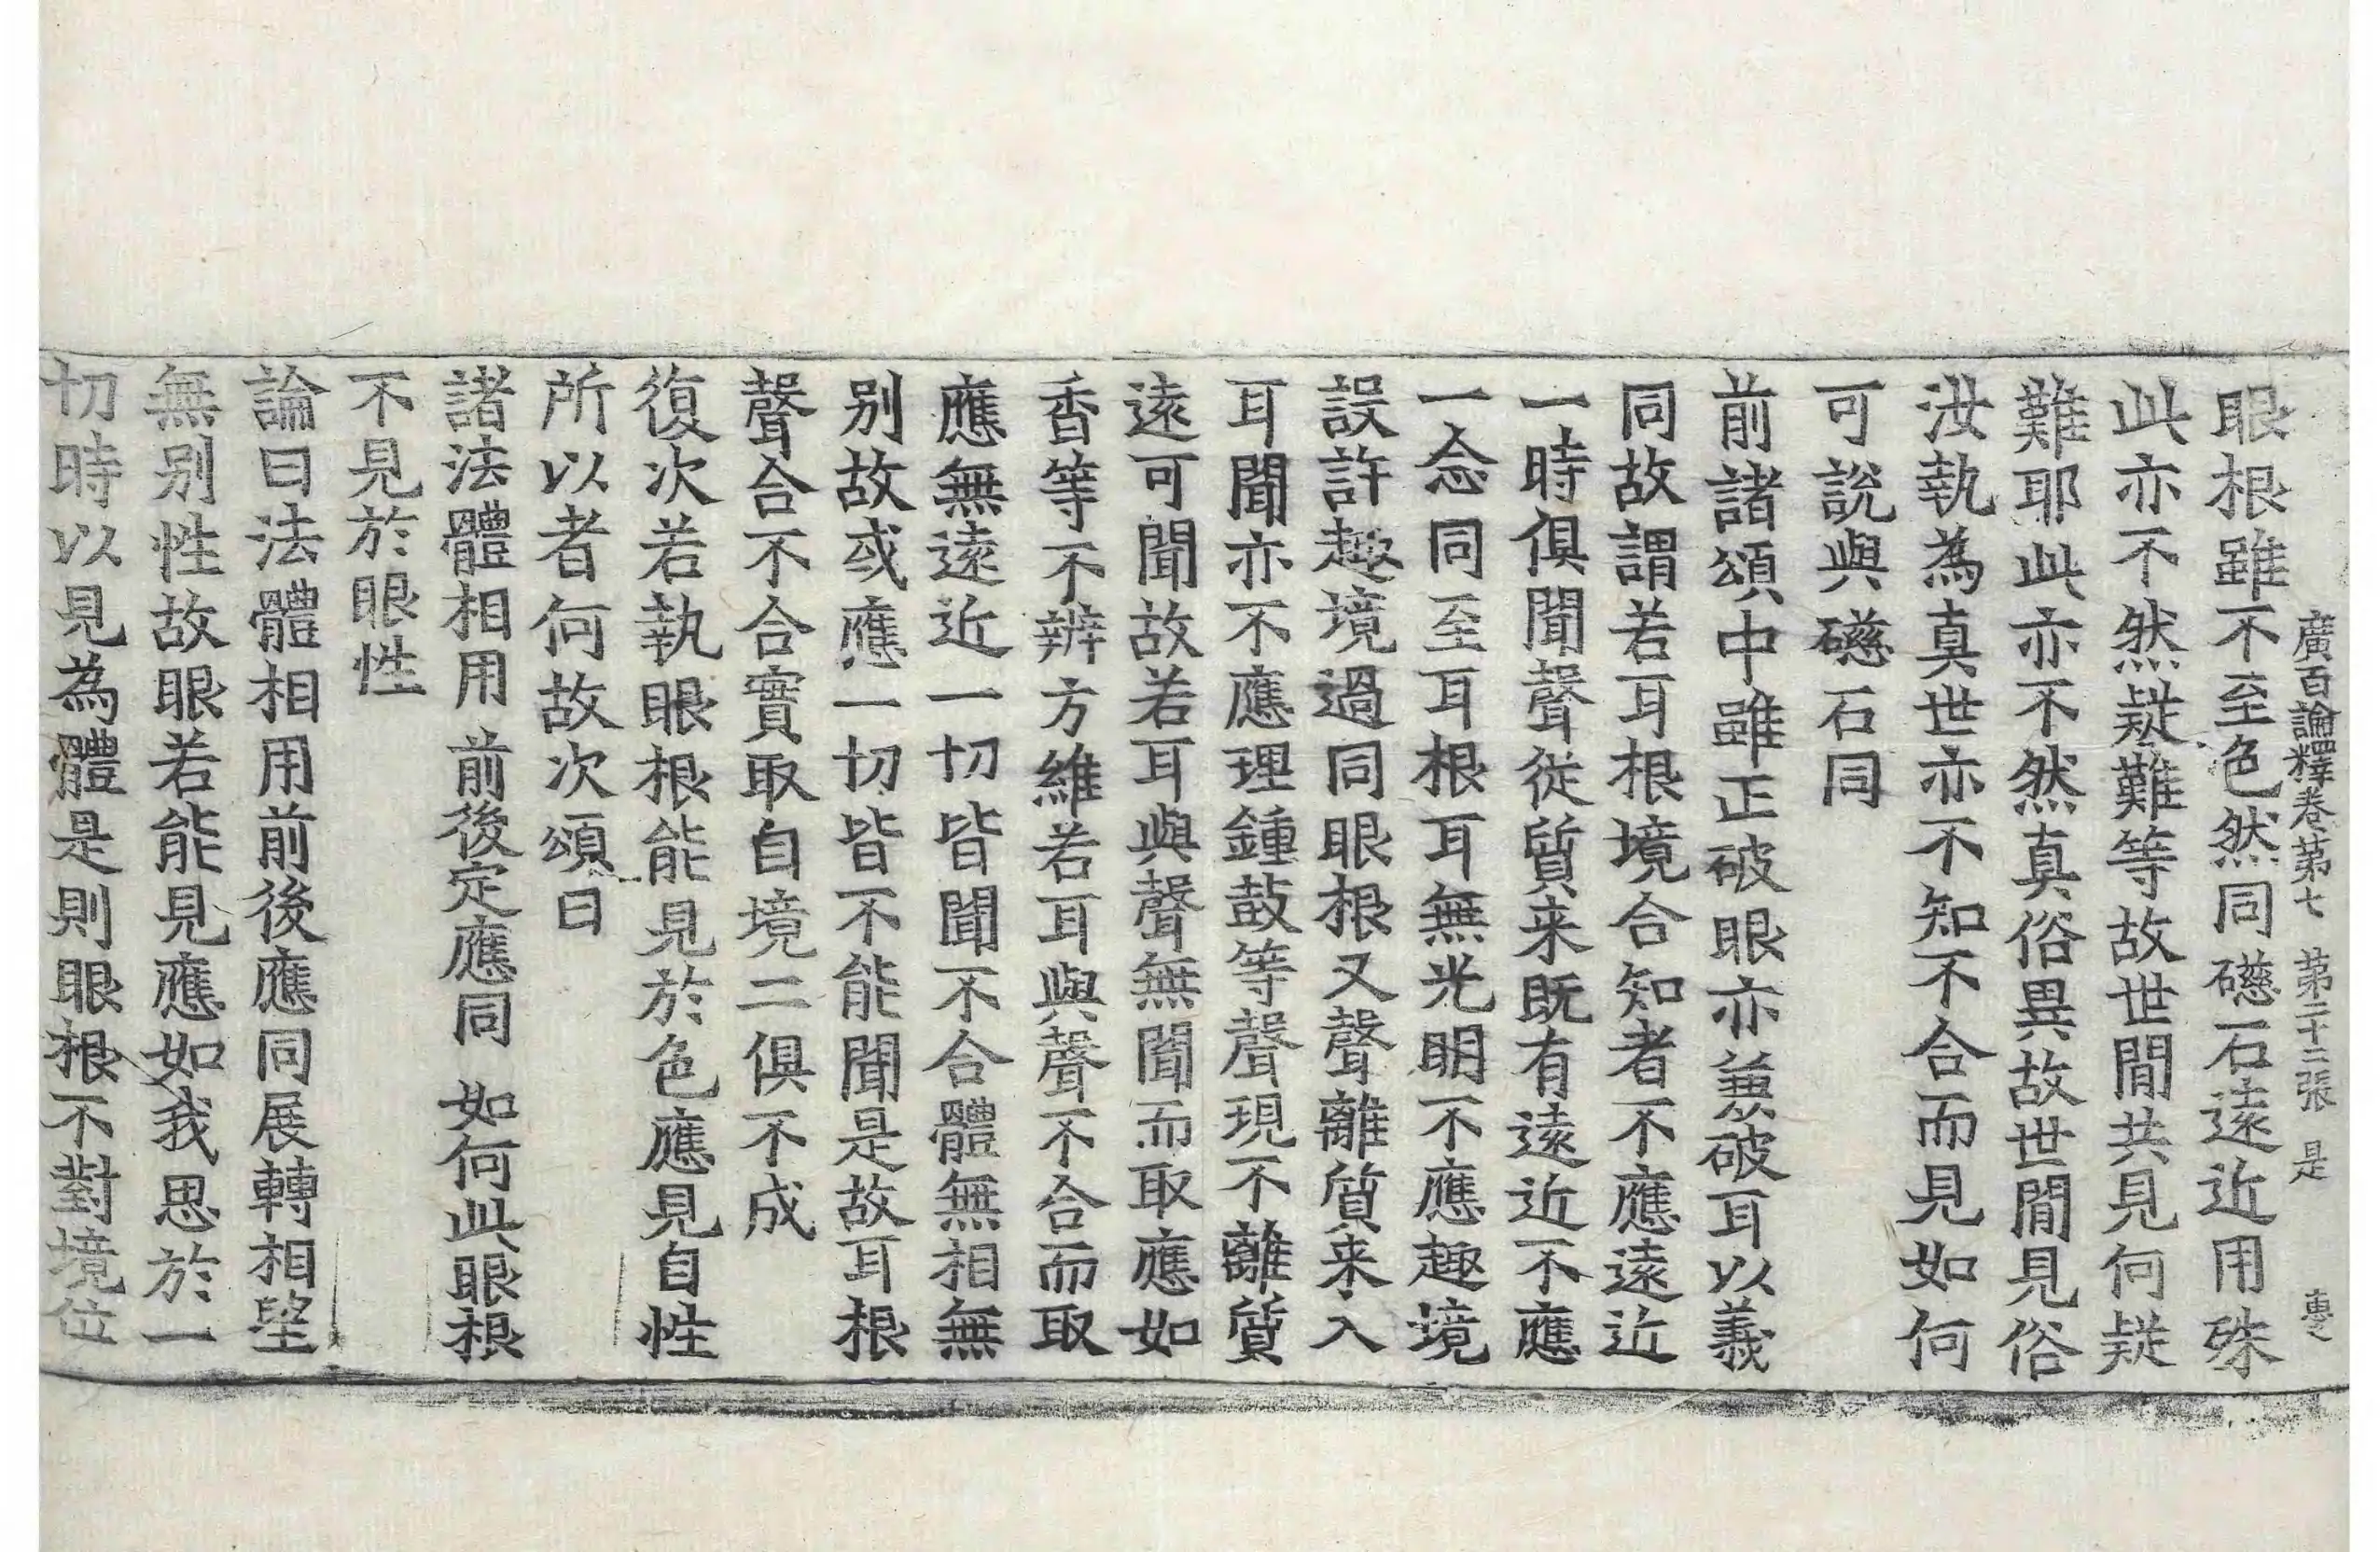 廣百論釋卷第七 第二十二張 是
眼根雖不至色然同礠石遠近用殊
此亦不然疑難等故世間共見何疑
難耶此亦不然真俗異故世間見俗
汝執為真世亦不知不合而見如何
可說與礠石同
前諸頌中雖正破眼亦兼破耳以義
同故謂若耳根境合知者不應遠近
一時俱聞聲從質来既有遠近不應
一念同至耳根耳無光明不應趣境
設許趣境過同眼根又聲離質来入
耳聞亦不應理鍾鼓等聲現不離質
遠可聞故若耳與聲無聞而取應如
香等不辨方維若耳與聲不合而取
應無遠近一切皆聞不合體無相無
别故或應一切皆不能聞是故耳根
聲合不合實取自境二俱不成
復次若執眼根能見於色應見自性
所以者何故次頌曰
諸法體相用 前後定應同 如何此眼根
不見於眼性
論曰法體相用前後應同展轉相望
無别性故眼若能見應如我思於一
切時以見為體是則眼根不對境位